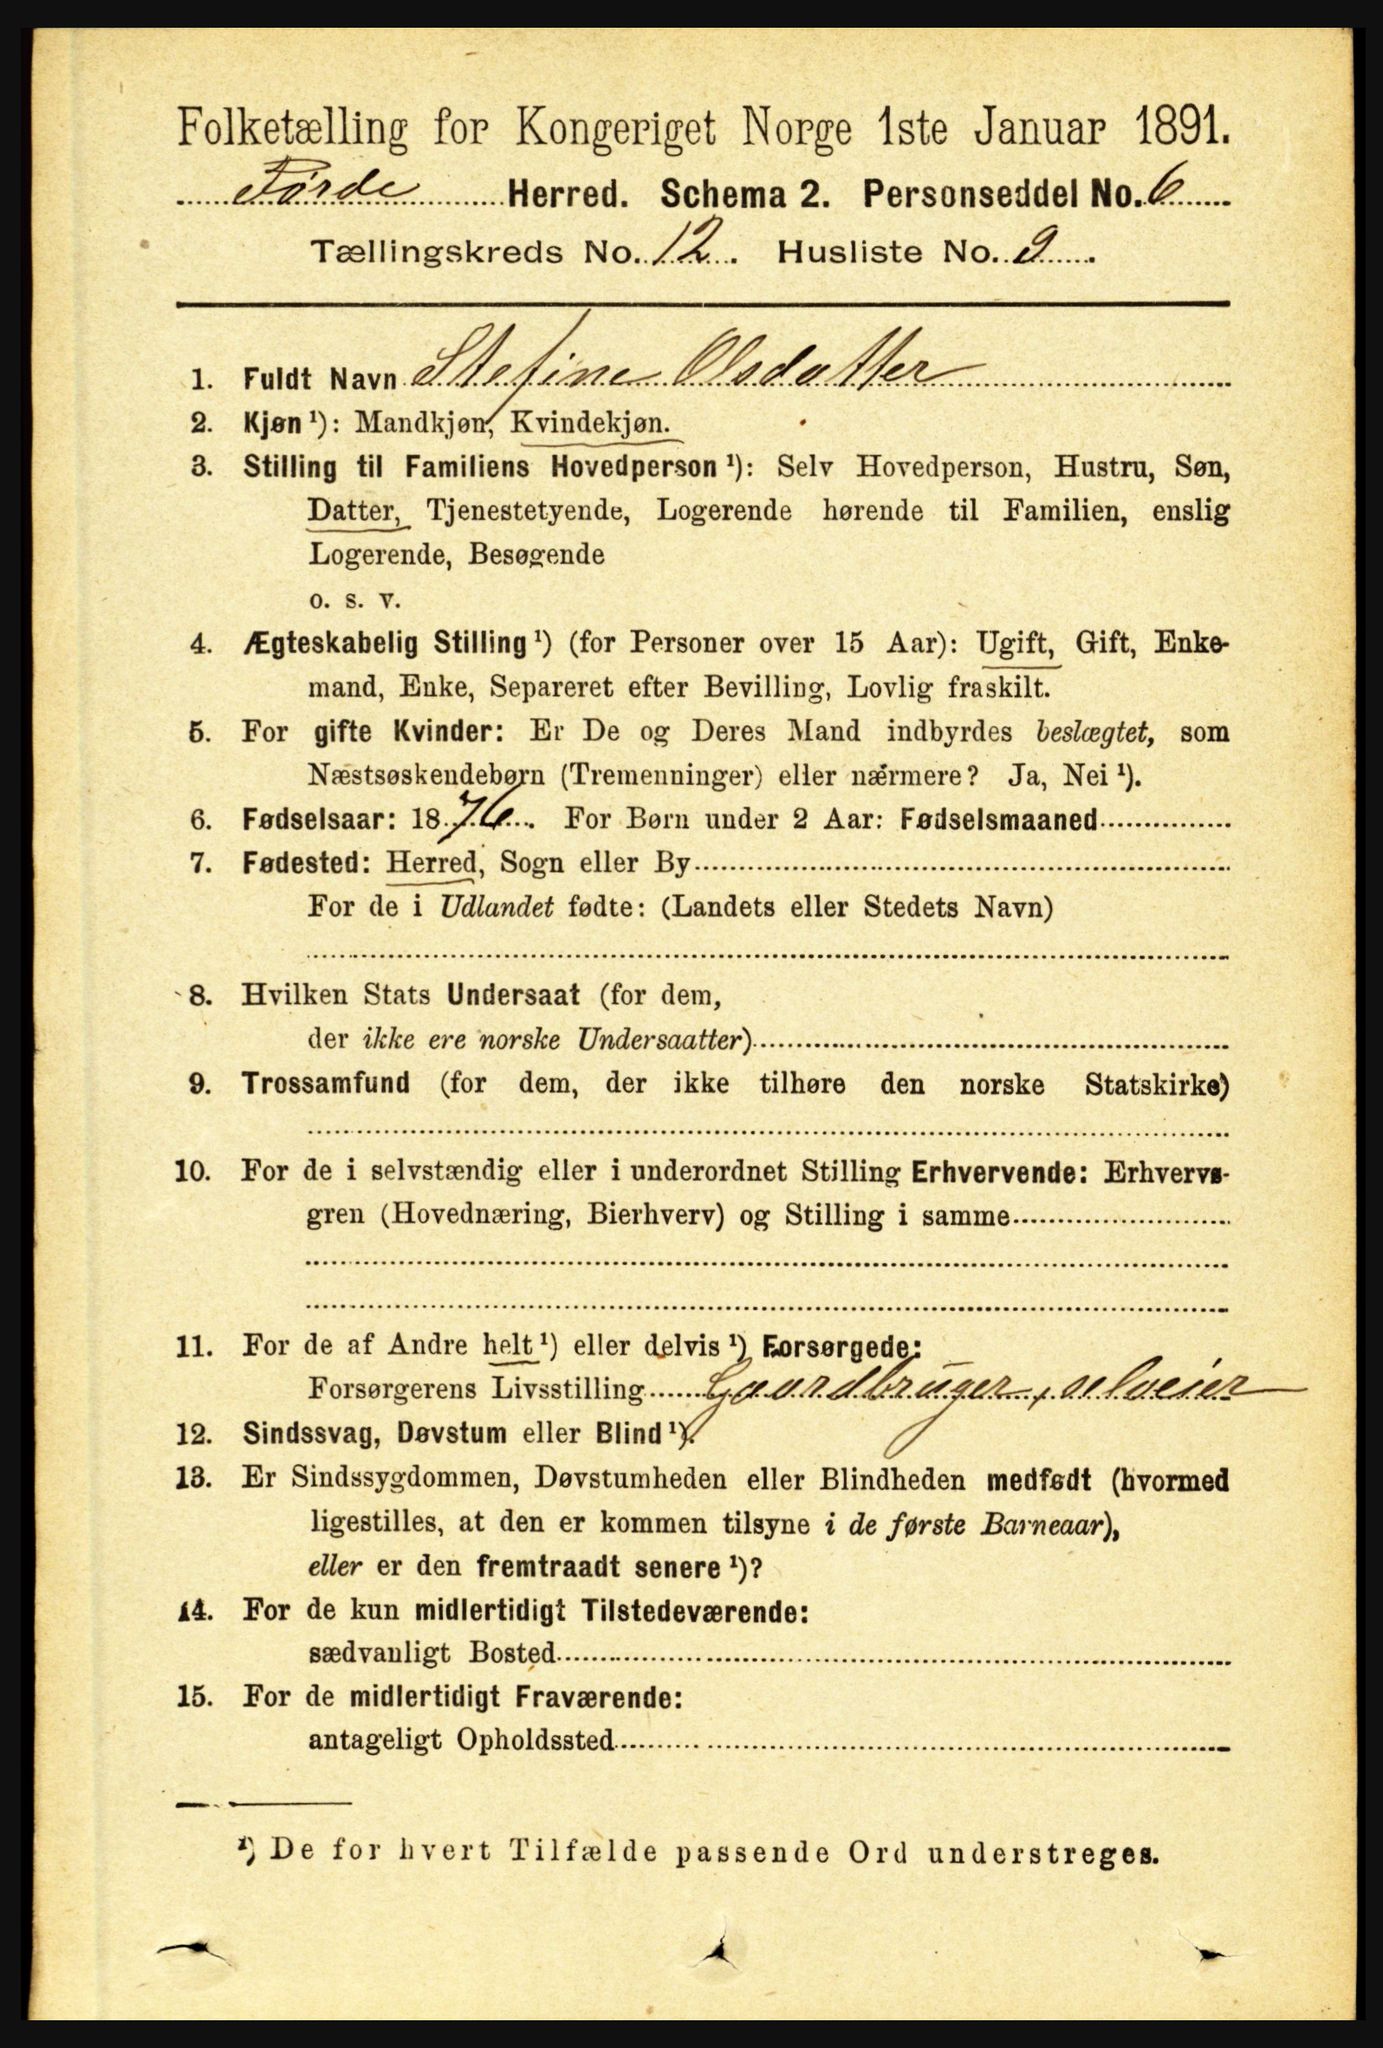 Folketælling for Kongeriget Norge 1ste Januar 1891.
Førde Herred. Schema 2. Personseddel No. 6
Tællingskreds No. 12. Husliste No. 9.
1. Fuldt Navn Stefine Olsdatter
2. Kjøn ¹): Mandkjøn, Kvindekjøn.
3. Stilling til Familiens Hovedperson ¹): Selv Hovedperson, Hustru, Søn,
Datter, Tjenestetyende, Logerende hørende til Familien, enslig
Logerende, Besøgende
o. s. v.
4. Ægteskabelig Stilling ¹) (for Personer over 15 Aar): Ugift, Gift, Enke-
mand, Enke, Separeret efter Bevilling, Lovlig fraskilt.
5. For gifte Kvinder: Er De og Deres Mand indbyrdes beslægtet, som
Næstsøskendebørn (Tremenninger) eller nærmere? Ja, Nei ¹).
6. Fødselsaar: 1876. For Børn under 2 Aar: Fødselsmaaned
7. Fødested: Herred, Sogn eller By
For de i Udlandet fødte: (Landets eller Stedets Navn)
8. Hvilken Stats Undersaat (for dem,
der ikke ere norske Undersaatter)
9. Trossamfund (for dem, der ikke tilhøre den norske Statskirke)
10. For de i selvstændig eller i underordnet Stilling Erhvervende: Erhvervs-
gren (Hovednæring, Bierhverv) og Stilling i samme
11. For de af Andre helt ¹) eller delvis ¹) Forsørgede:
Forsørgerens Livsstilling Gaardbruger, selveier
12. Sindssvag, Døvstum eller Blind ¹).
13. Er Sindssygdommen, Døvstumheden eller Blindheden medfødt (hvormed
ligestilles, at den er kommen tilsyne i de første Barneaar),
eller er den fremtraadt senere ¹)?
14. For de kun midlertidigt Tilstedeværende:
sædvanligt Bosted
15. For de midlertidigt Fraværende:
antageligt Opholdssted
¹) De for hvert Tilfælde passende Ord understreges.